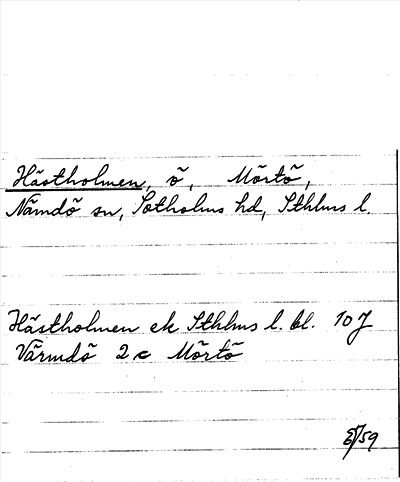 Hästholmen, ö, Mörtö,
Nämdö sn, Sotholms hd, Sthlms l.
Hästholmen ek Sthlms l. bl. 10 J
Värmdö 2c Mörtö
/59